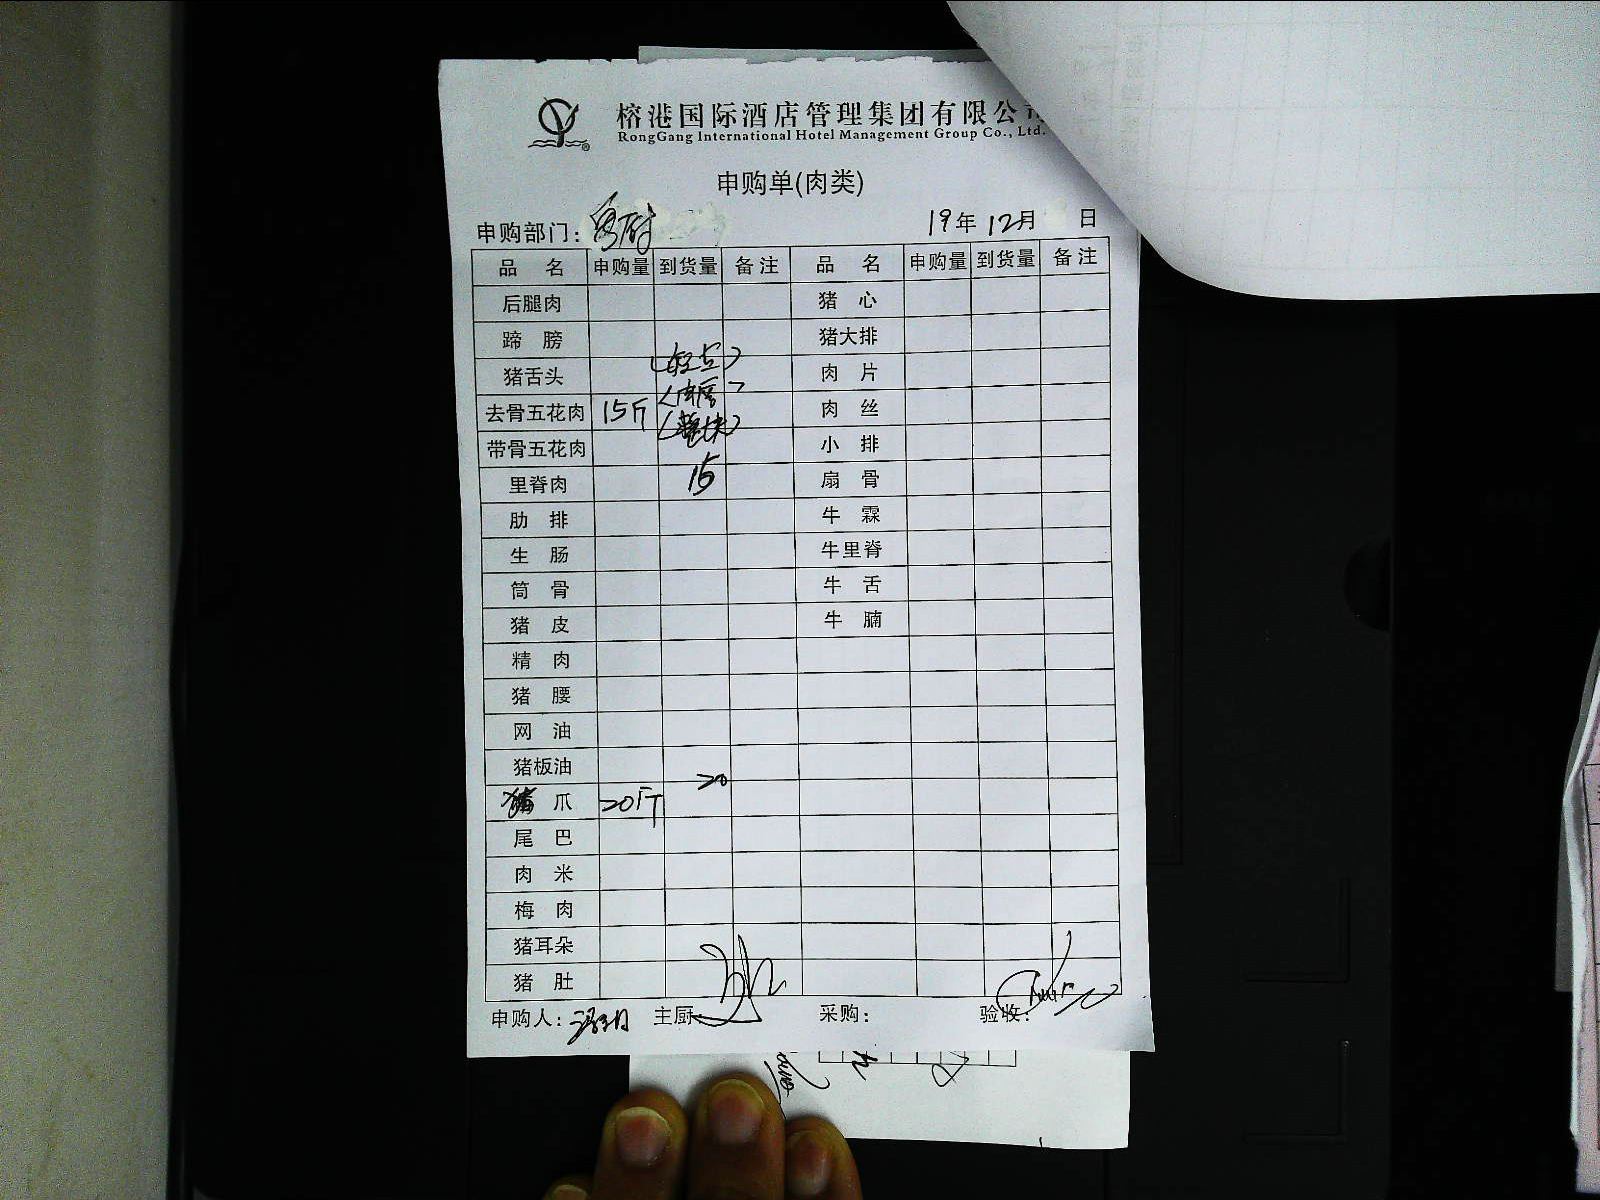 榕港国际酒店管理集团有限公司
RongGang International Hotel Management Group Co., Ltd.
申购单(肉类)
申购部门： 19年12月 日
品 名 申购量 到货量 备注 品 名 申购量 到货量 备注
后腿肉 猪 心
蹄 膀 猪大排
猪舌头 肉 片
去骨五花肉 15斤 (肉厚) (整块) 肉 丝
带骨五花肉 小 排
里脊肉 15 扇 骨
肋 排 牛 霖
生 肠 牛里脊
筒 骨 牛 舌
猪 皮 牛 腩
精 肉
猪 腰
网 油
猪板油
猪 爪 20斤 20
尾 巴
肉 米
梅 肉
猪耳朵
猪 肚
申购人： 主厨： 采购： 验收：